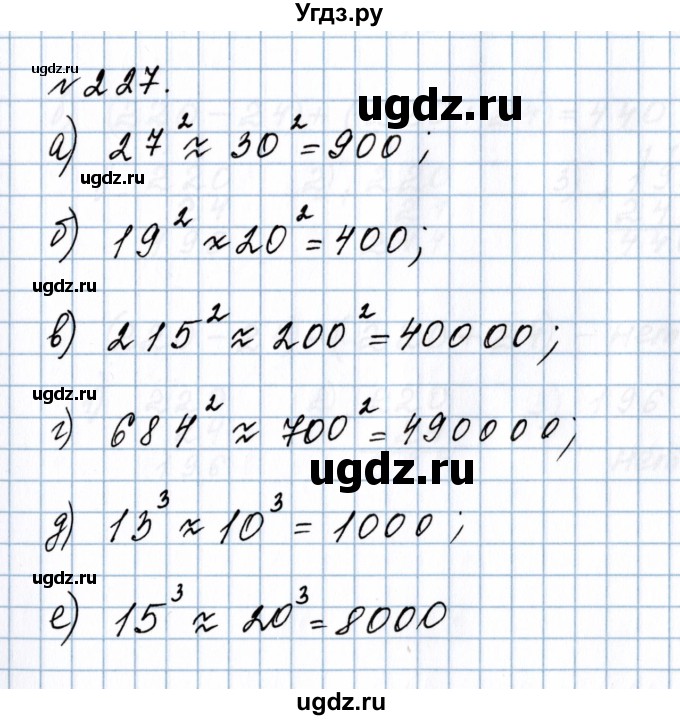 Угдз.ру
ugdz.ru
№227.
ugdz.ru
а) 27² ≈ 30² = 900;
ugdz.ru
б) 19² ≈ 20² = 400;
ugdz.ru
в) 215² ≈ 200² = 40000;
г) 684² ≈ 700² = 490000;
ugdz.ru
ugdz.ru
д) 13³ ≈ 10³ = 1000;
ugdz.ru
е) 15³ ≈ 20³ = 8000
ugdz.ru
ugdz.ru